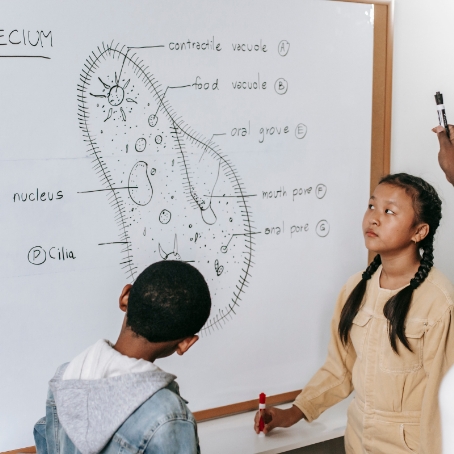 ECIUM
contractile vacuole A
food vacuole B
oral grove E
nucleus
mouth pore F
oral pore G
D Cilia